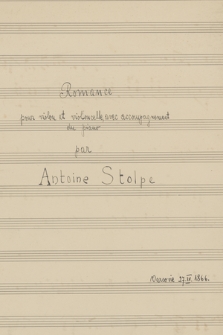 Romance
pour violon et violoncelle avec accompagnement
du piano
par
Antoine Stolpe
27 IV 1866.